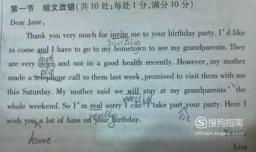 第一节 短文改错(共10处;每处1分,满分10分)
Dear Jane,
Thank you very much for invite me to your birthday party. I'd like
to come and I have to go to my hometown to see my grandparents. They
are very older and not in a good health recently. However, my mother
made a telephone call to them last week, promised to visit them with me
this Saturday. My mother said we will stay at my grandparents' the
whole weekend. So I'm real sorry I can't take part your party. Here I
wish you a lot of funs on your birthday.
have
Lisa
搜狗问问